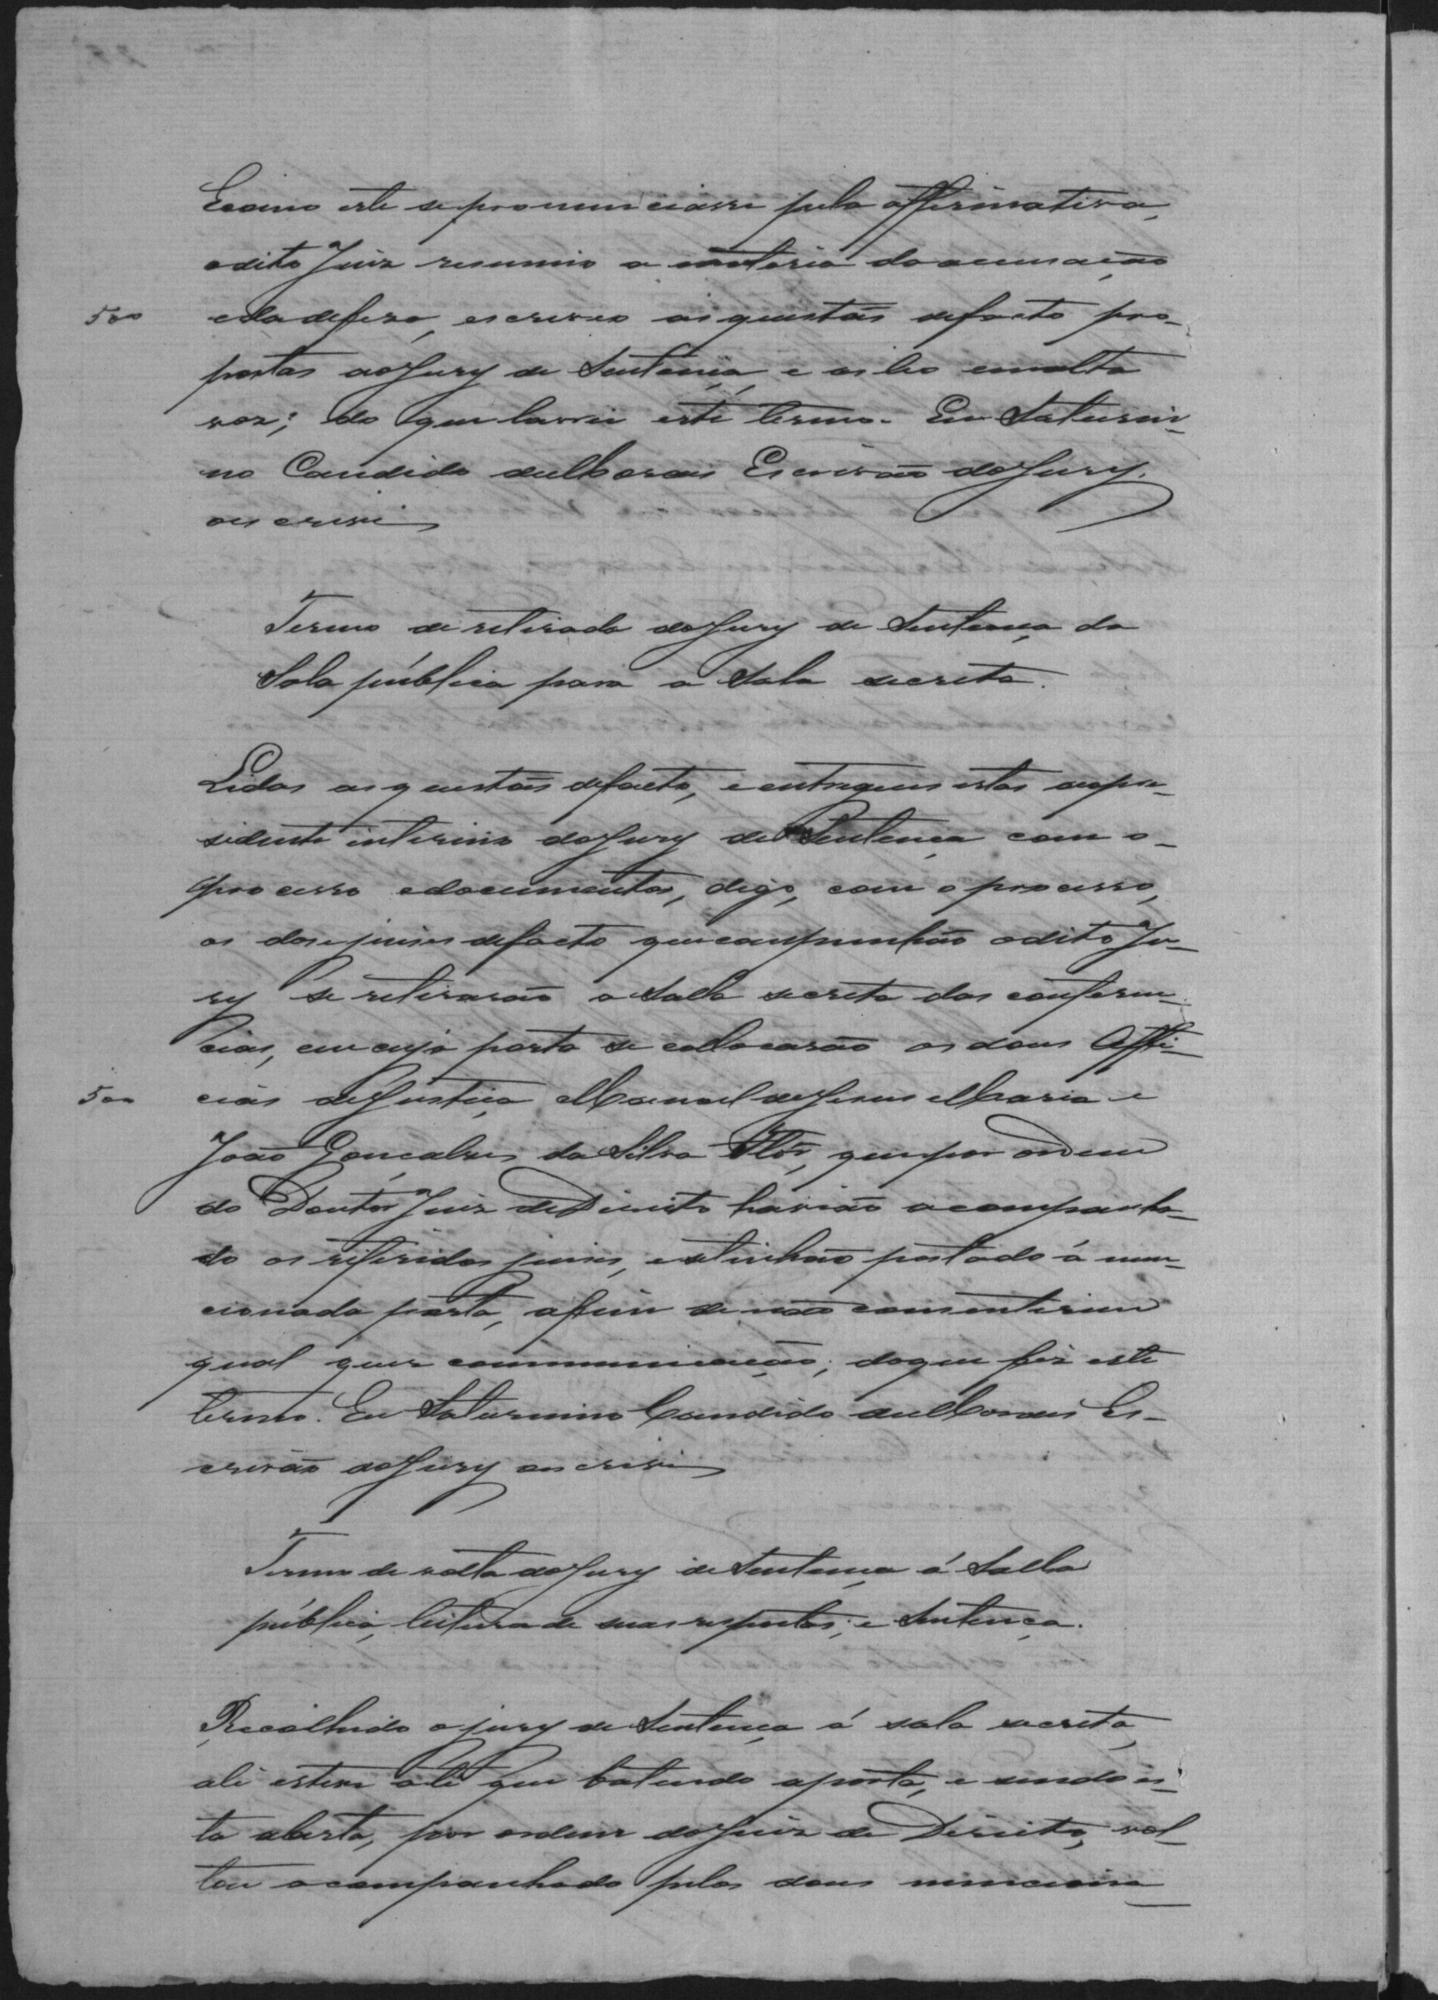 E como este se pronunciasse pela affirmativa,
o dito Juiz resumio a materia da accusação
500 e da defeza, escreveo as questões de facto pro-
postas ao Jury de Sentença, e as leo em alta
voz; do que lavrei este termo. Eu Saturni-
no Candido de Moraes Escrivão do Jury,
o escrevi
Termo de retirada do Jury de Sentença da
Sala pública para a Sala secreta.
Lidas as questões de facto, e entregues estas ao pre-
sidente interino do Jury de Sentença com o
processo e documentos, digo, com o processo,
os dose juises de facto que compunhão o dito Ju-
ry se retirarão a Salla secreta das conferen-
cias, em cuja porta se collocarão os dous Offi-
500 ciaes de Justiça Manoel de Jesus Maria e
João Gonçalves da Silva Flôr, que por ordem
do Doutor Juiz de Direito havião acompanha-
do os referidos juises, e se tinhão postado á men-
cionada porta, a fim de não consentirem
qual quer communicação; do que fiz este
termo. Eu Saturnino Candido de Moraes Es-
crivão do Jury o escrevi
Termo de volta do Jury de Sentença á Salla
pública, leitura de suas respostas, e Sentença.
Recolhido o jury de Sentença á sala secreta,
ali esteve até que batendo a porta, e sendo es-
ta aberta, por ordem do Juiz de Direito, vol-
tou acompanhado pelos dous menciona